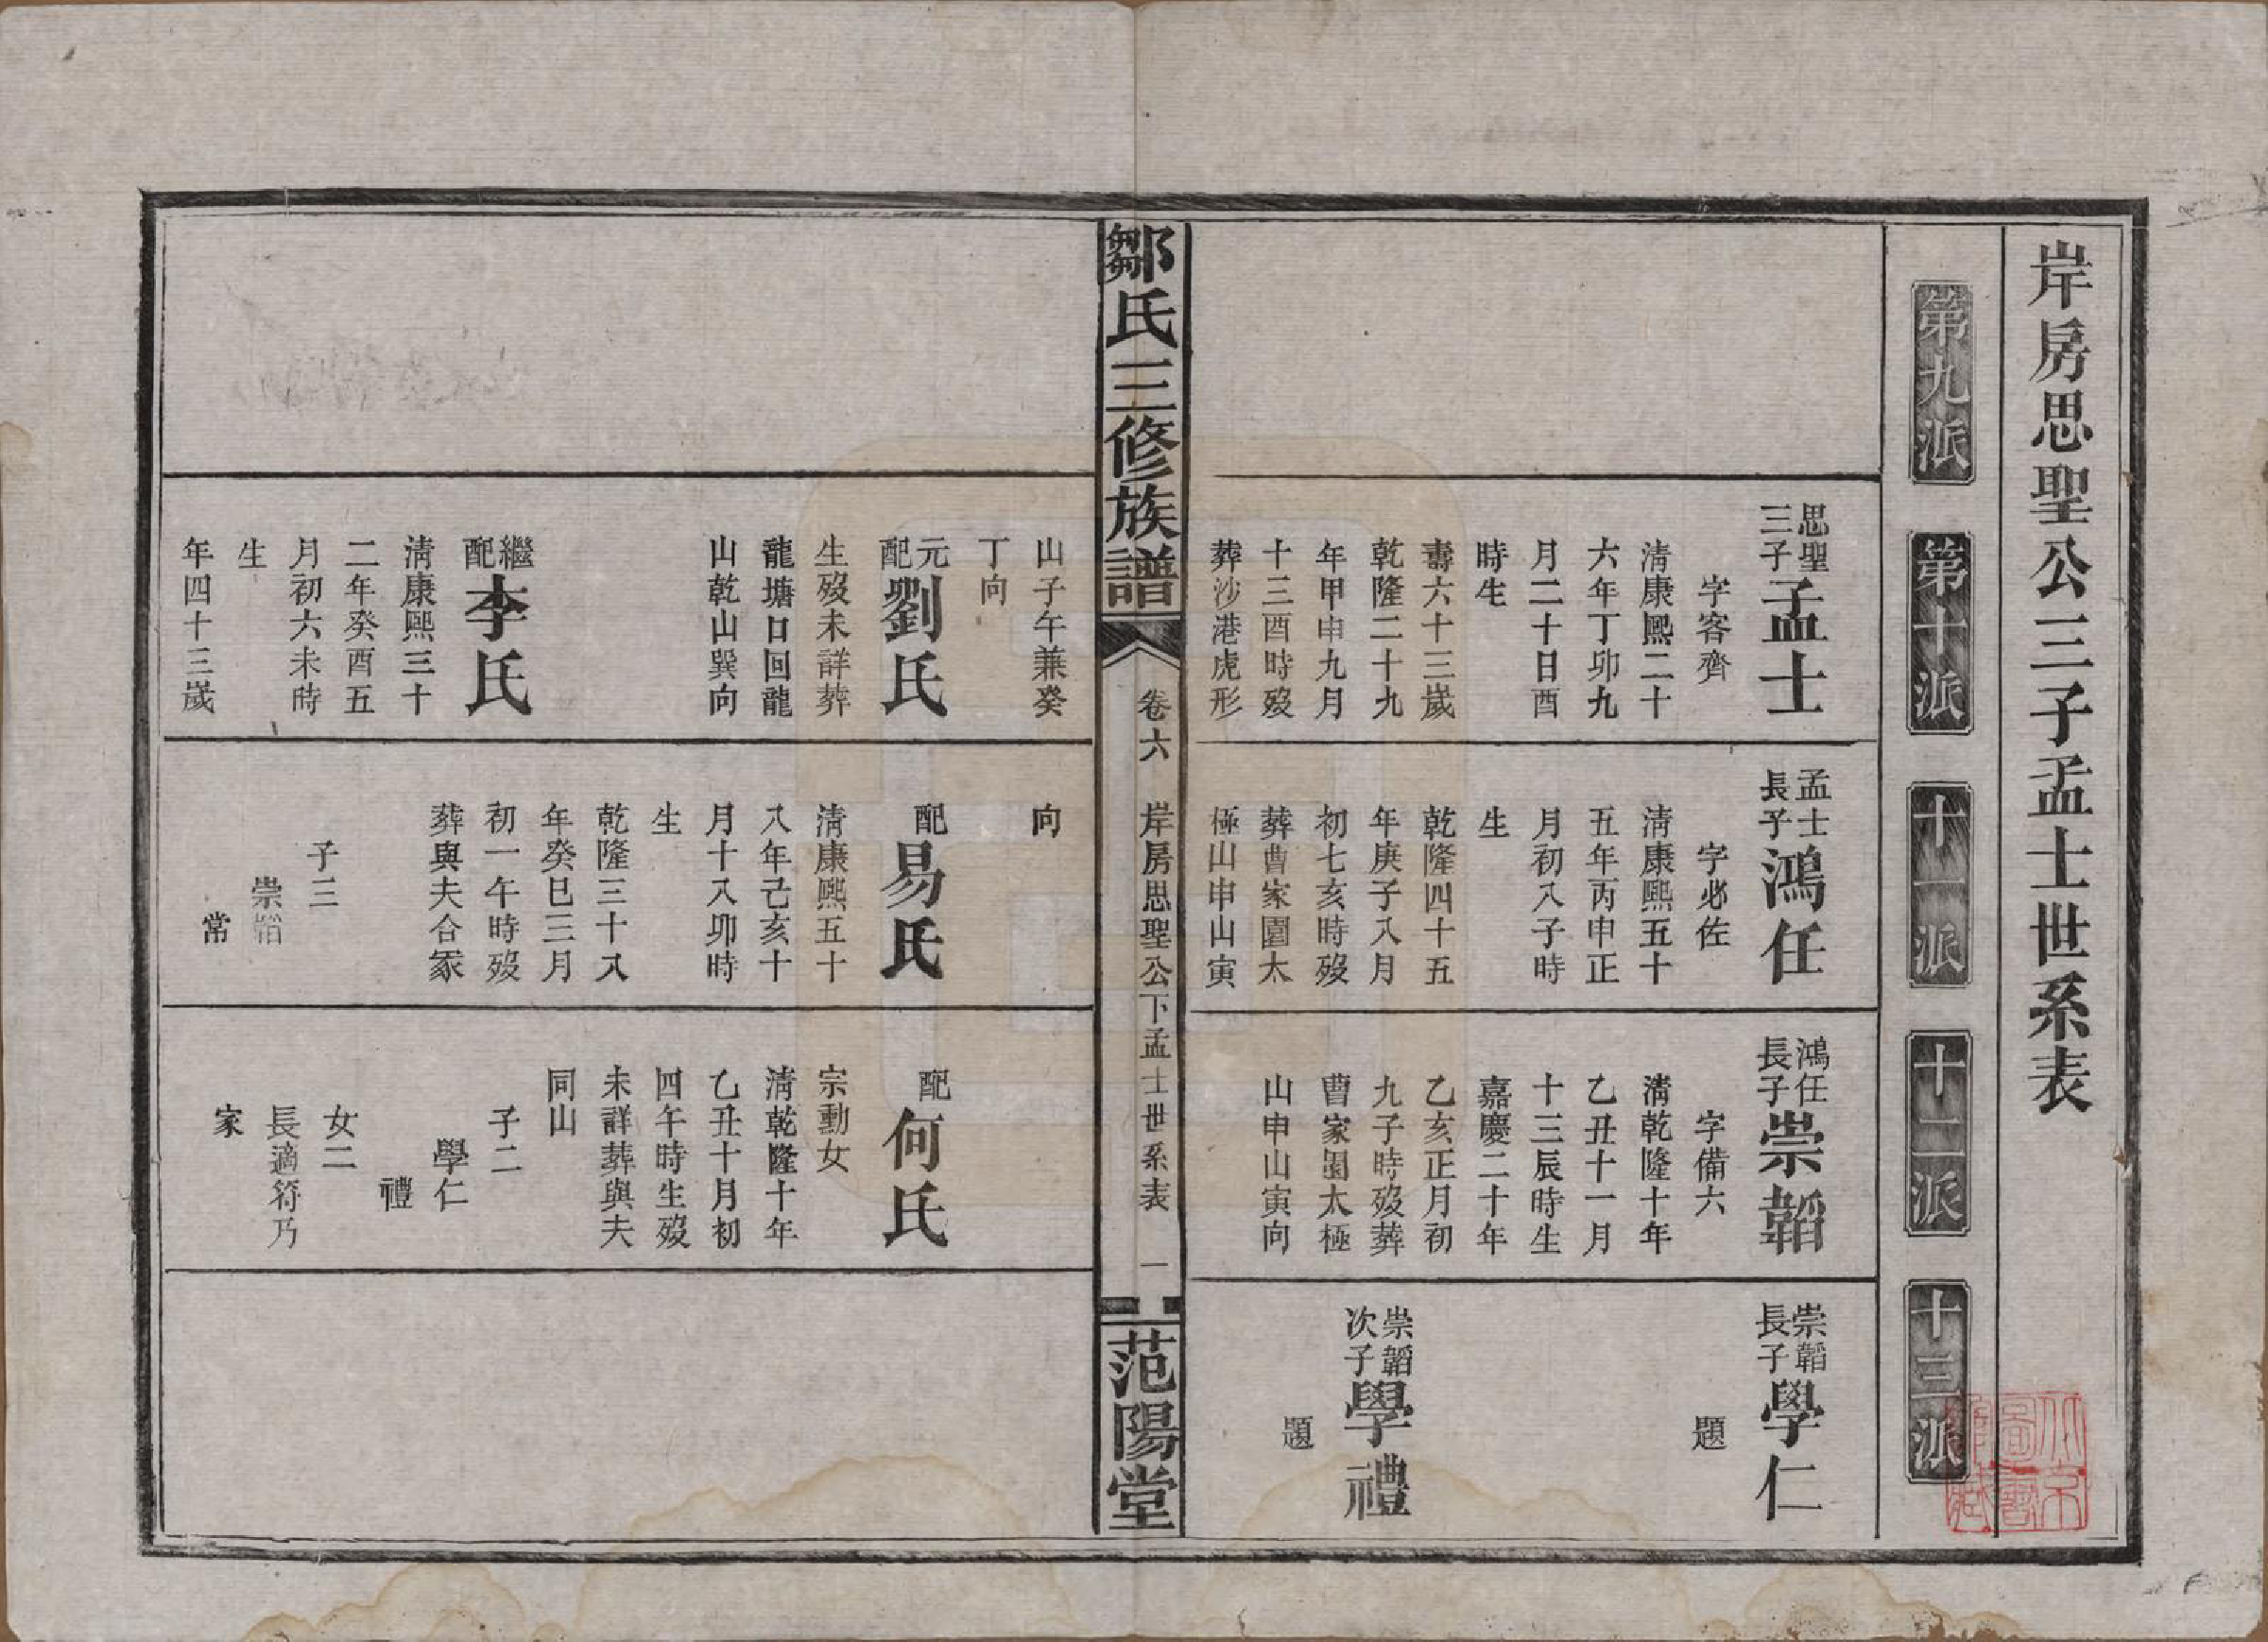 岸房思聖公三子孟士世系表
第九派
第十派
十一派
十二派
十三派
思聖
三子
孟士
字客齊
清康熙二十
六年丁卯九
月二十日酉
時生
壽六十三歲
乾隆二十九
年甲申九月
十三酉時歿
葬沙港虎形
孟士
長子
鴻任
字必佐
清康熙五十
五年丙申正
月初八子時
生
乾隆四十五
年庚子八月
初七亥時歿
葬曹家園太
極山申山寅
鴻任
長子
崇韜
字備六
清乾隆十年
乙丑十一月
十三辰時生
嘉慶二十年
乙亥正月初
九子時歿葬
曹家園太極
山申山寅向
崇韜
長子
學仁
題
崇韜
次子
學禮
題
鄒氏三修族譜
卷六
岸房思聖公下孟士世系表
一
范陽堂
山子午兼癸
丁向
元
配
劉氏
生歿未詳葬
龍塘口回龍
山乾山巽向
繼
配
李氏
清康熙三十
二年癸酉五
月初六未時
生
年四十三歲
向
配
易氏
清康熙五十
八年己亥十
月十八卯時
生
乾隆三十八
年癸巳三月
初一午時歿
葬與夫合冢
子三
崇韜
常
配
何氏
宗勳女
清乾隆十年
乙丑十月初
四午時生歿
未詳葬與夫
同山
子二
學仁
禮
女二
長適符乃
家
北京
圖書
館藏